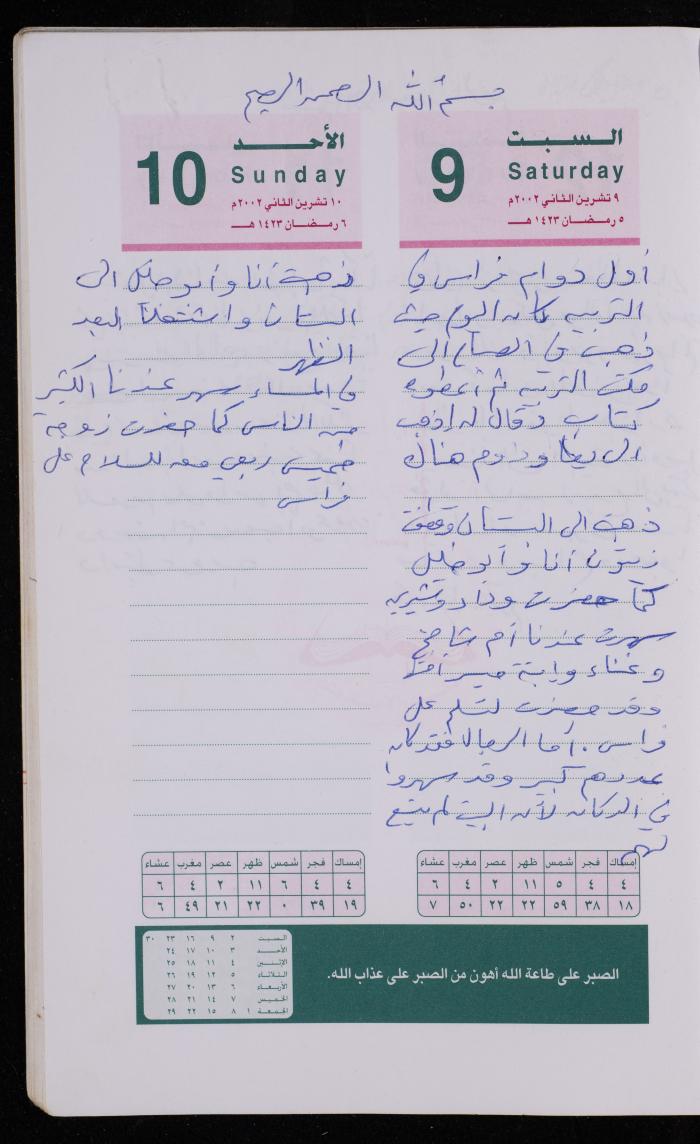 بسم الله الرحمن الرحيم
السبت
9
Saturday
٩ تشرين الثاني ٢٠٠٢م
٥ رمضان ١٤٢٣ هـ
أول دوام فراس في
التربيه كانه اليوم حيث
ذهب في الصباح الى
مكتب التربيه ثم أعطوه
كتاب وقال له اذهب
الى يطا ودوم هناك
ذهبت الى البستان وقطفت
زيتون أنا وأبو خليل
كما حضرت وداد وشيرين
سهرت عندنا أم شامخ
وغناء وابنة ميسر أختها
وقد حضرت لتسلم على
فراس . أما الرجال فقد كان
عددهم كبير وقد سهروا
في الدكانه لأنه البيت لم يتسع
لهم
الأحد
10
Sunday
١٠ تشرين الثاني ٢٠٠٢م
٦ رمضان ١٤٢٣ هـ
ذهبت أنا وأبو خليل الى
البستان واشتغلنا لبعد
الظهر
في المساء سهر عندنا الكثير
من الناس كما حضرت زوجة
خميس ربعي معه للسلام على
فراس
إمساك فجر شمس ظهر عصر مغرب عشاء
٤ ٤ ٥ ١١ ٢ ٤ ٦
١٨ ٣٨ ٥٩ ٢٢ ٢٢ ٥٠ ٧
إمساك فجر شمس ظهر عصر مغرب عشاء
٤ ٤ ٦ ١١ ٢ ٤ ٦
١٩ ٣٩ ٠ ٢٢ ٢١ ٤٩ ٦
الصبر على طاعة الله أهون من الصبر على عذاب الله.
السبت ٢ ٩ ١٦ ٢٣ ٣٠
الأحد ٣ ١٠ ١٧ ٢٤
الإثنين ٤ ١١ ١٨ ٢٥
الثلاثاء ٥ ١٢ ١٩ ٢٦
الأربعاء ٦ ١٣ ٢٠ ٢٧
الخميس ٧ ١٤ ٢١ ٢٨
الجمعة ١ ٨ ١٥ ٢٢ ٢٩